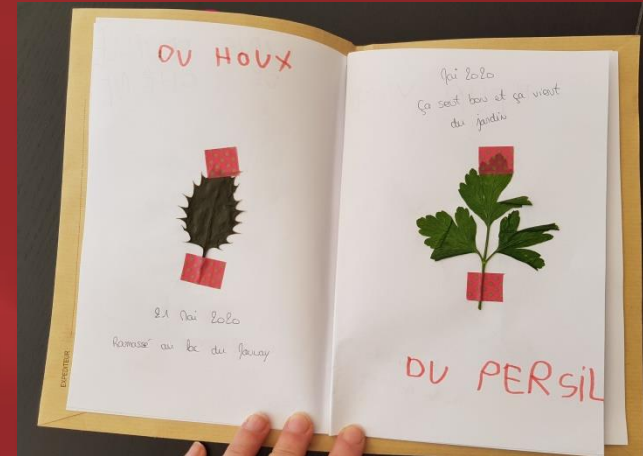 DU HOUX
21 Mai 2020
Ramassé au lac du Jaunay
EXPEDITEUR
Mai 2020
Ça sent bon et ça vient
du jardin
DU PERSiL